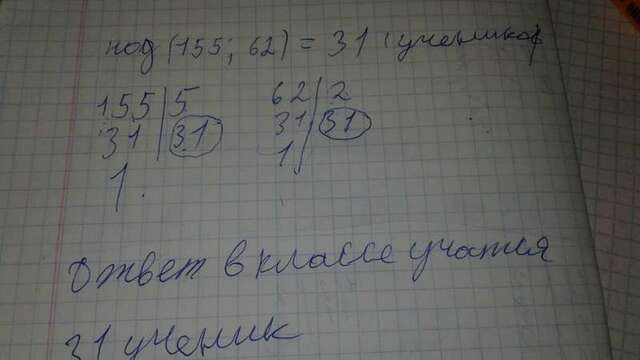 нод (155; 62) = 31 (учеников)
155 | 5 62 | 2
31 | 31 31 | 31
1. 1
Ответ в классе учатся
31 ученик